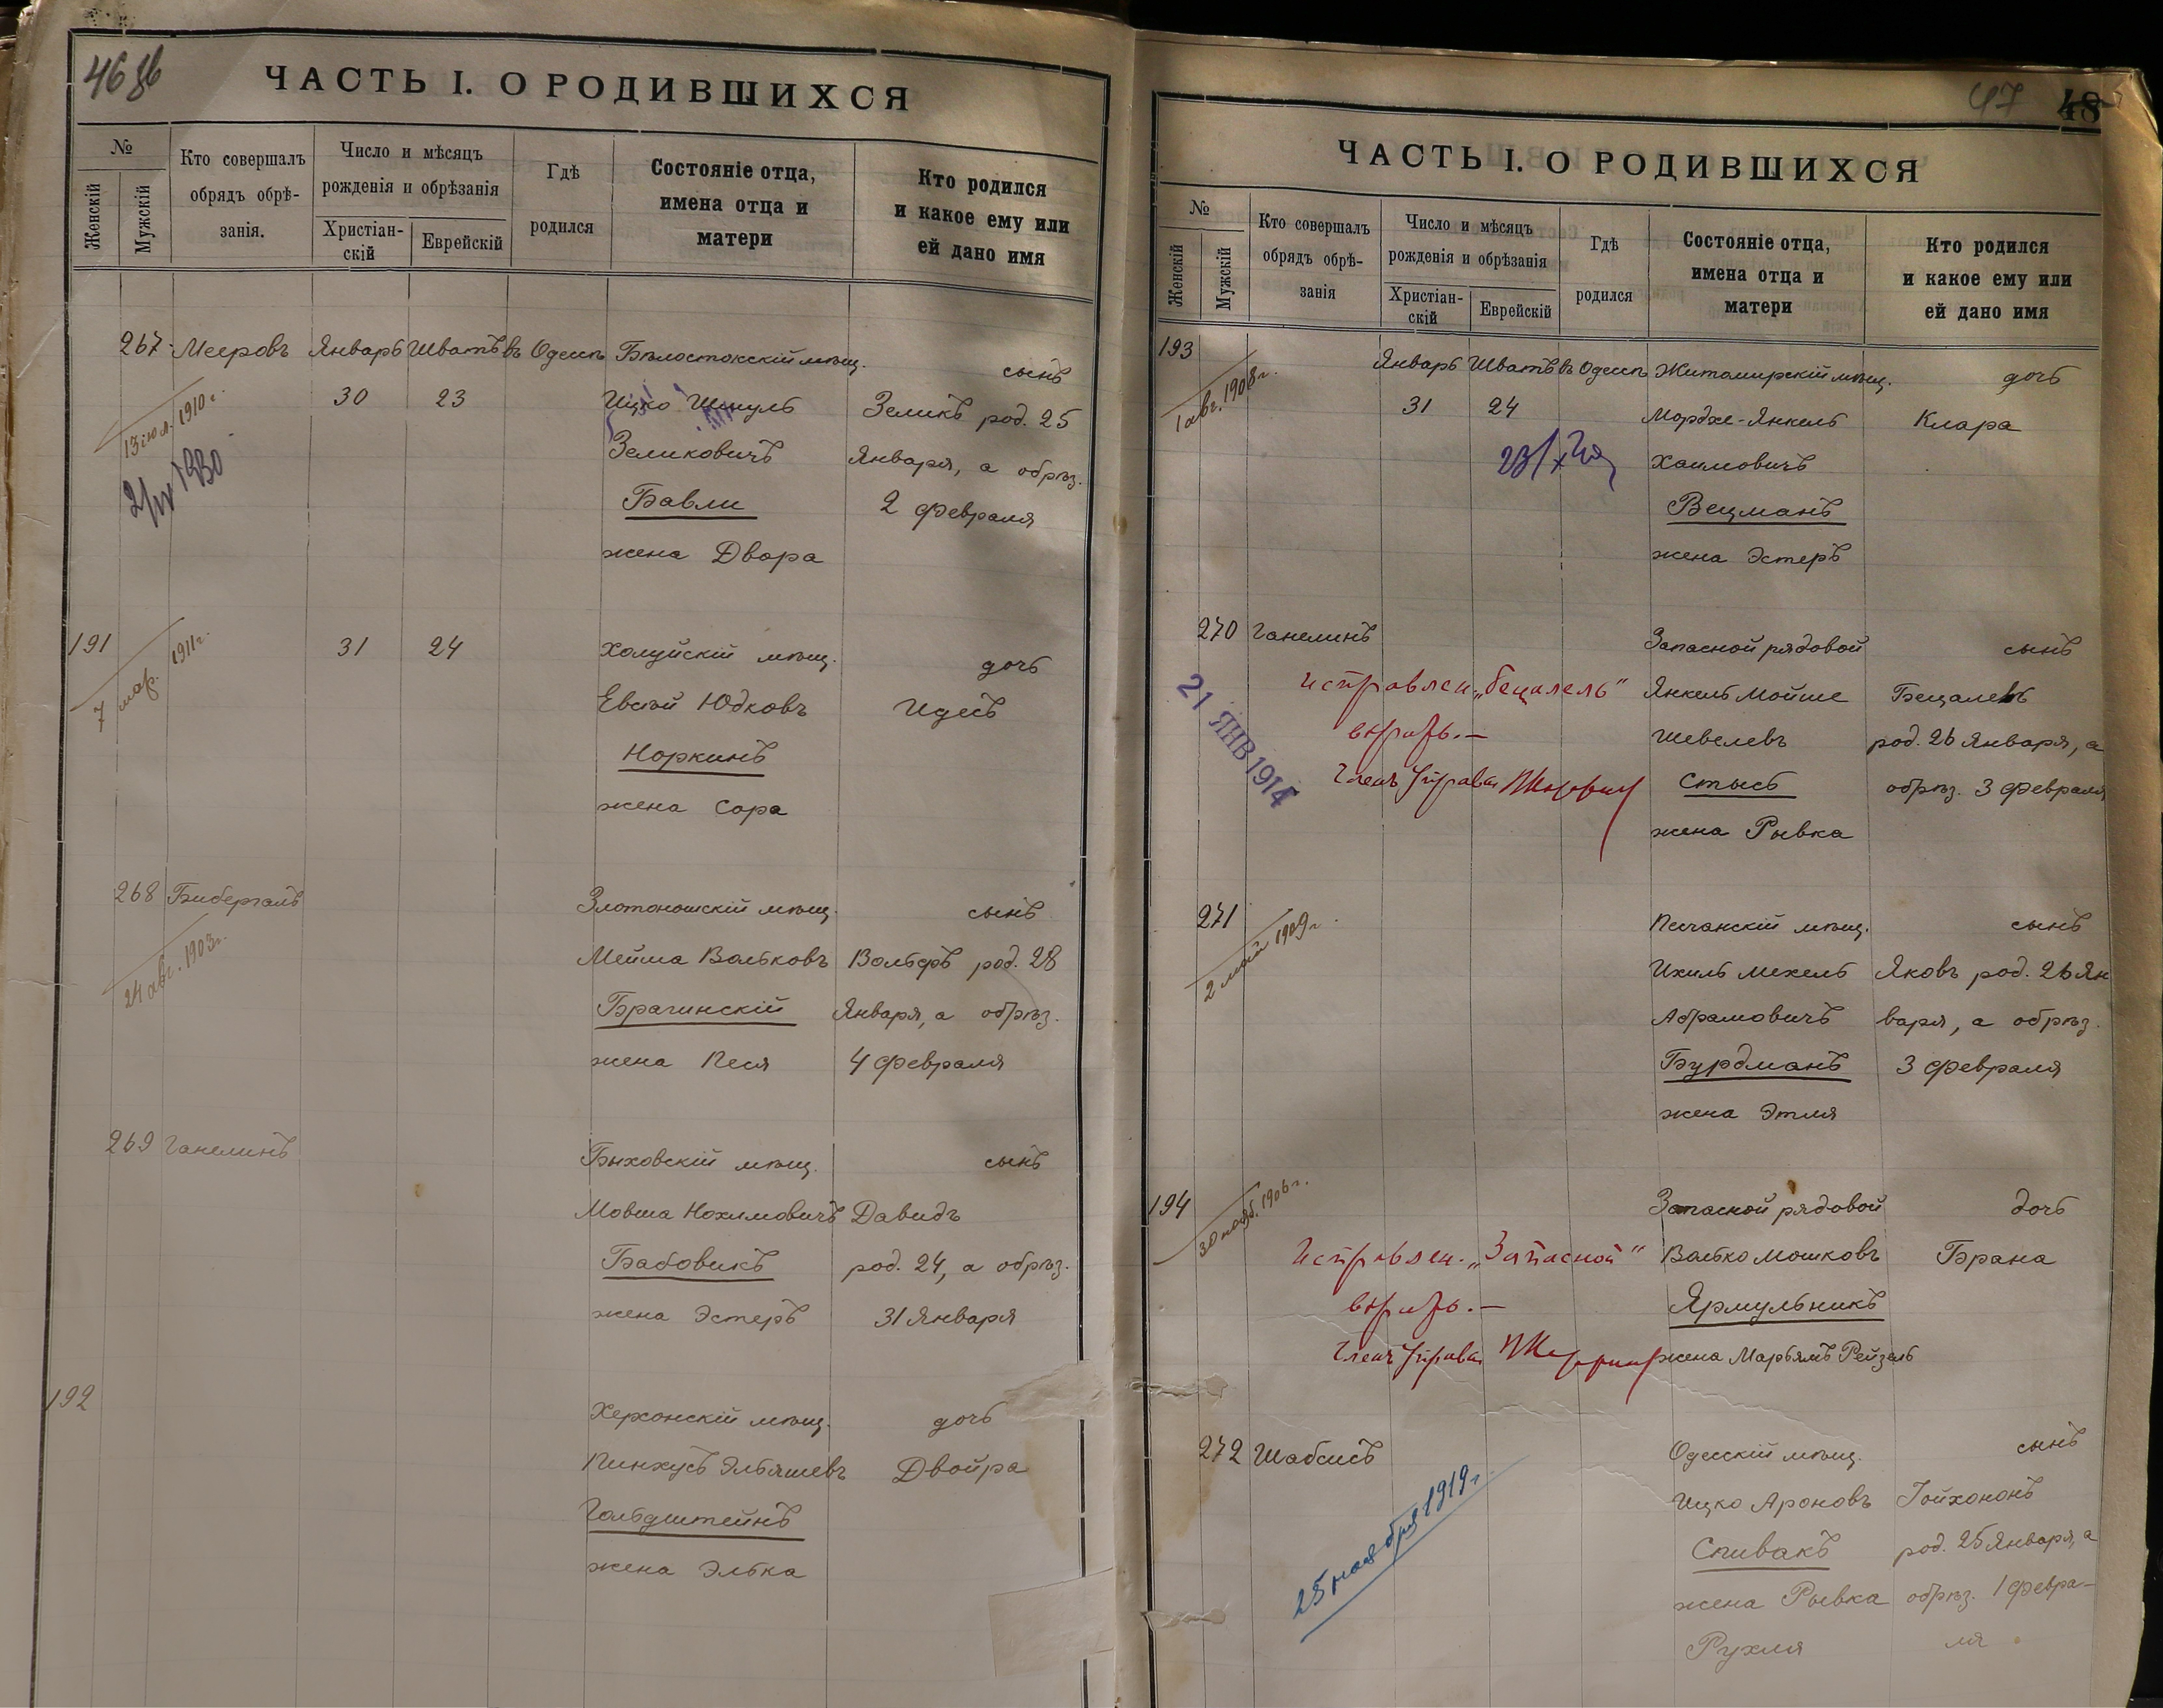 46 об
ЧАСТЬ I. О РОДИВШИХСЯ
№
Женскій
Мужскій
Кто совершалъ
обрядъ обрѣ-
занія.
Число и мѣсяцъ
рожденія и обрѣзанія
Христіан-
скій
Еврейскій
Гдѣ
родился
Состояніе отца,
имена отца и
матери
Кто родился
и какое ему или
ей дано имя
267 Мееровъ Январь Шватъ въ Одессѣ Бѣлостокскій мѣщ. сынъ
13 іюл. 1910 г. 30 23 Ицко Шмуль Зеликъ род. 25
2/IV 1930 Зеликовичъ Января, а обрѣз.
Бавли 2 февраля
жена Двора
191 31 24 Холуйскій мѣщ. дочь
7 мар. 1911 г. Евсѣй Юдковъ Идесъ
Норкинъ
жена Сора
268 Бибергалъ Златоношскій мѣщ. сынъ
24 авг. 1903 г. Мейша Вольковъ Вольфъ род. 28
Брагинскій Января, а обрѣз.
жена Песя 4 февраля
269 Ганелинъ Быховскій мѣщ. сынъ
Мовша Нохимовичъ Давидъ
Бабовикъ род. 24, а обрѣз.
жена Эстеръ 31 Января
192 Херсонскій мѣщ. дочь
Пинхусъ Эльяшевъ Двойра
Гольдштейнъ
жена Элька
47 48
ЧАСТЬ I. О РОДИВШИХСЯ
№
Женскій
Мужскій
Кто совершалъ
обрядъ обрѣ-
занія
Число и мѣсяцъ
рожденія и обрѣзанія
Христіан-
скій
Еврейскій
Гдѣ
родился
Состояніе отца,
имена отца и
матери
Кто родился
и какое ему или
ей дано имя
193 Январь Шватъ въ Одессѣ Житомирскій мѣщ. дочь
1 авг. 1908 г. 31 24 Мордхе-Янкель Клара
Хаимовичъ
Вецманъ
жена Эстеръ
270 Ганелинъ Запасной рядовой сынъ
21 ЯНВ 1914 Исправлен. „Бецалель" Янкель Мойше Бецалель
вѣрить.— Шевелевъ род. 26 Января, а
Членъ Управы Стысь обрѣз. 3 февраля
жена Рывка
271 Песчанскій мѣщ. сынъ
2 май 1909 г. Ихиль Мехель Яковъ род. 26 Ян
Абрамовичъ варя, а обрѣз.
Бурдманъ 3 февраля
жена Этля
194 Запасной рядовой дочь
30 нояб. 1906 г. Исправлен. „Запасной" Волько Мошковъ Брана
вѣрить.— Ярмульникъ
Членъ Управы жена Марьямъ Рейзель
272 Шабсисъ Одесскій мѣщ. сынъ
25 ноября 1919 г. Ицко Ароновъ Іойхононъ
Спивакъ род. 25 Января, а
жена Рывка обрѣз. 1 февра-
Рухля ля